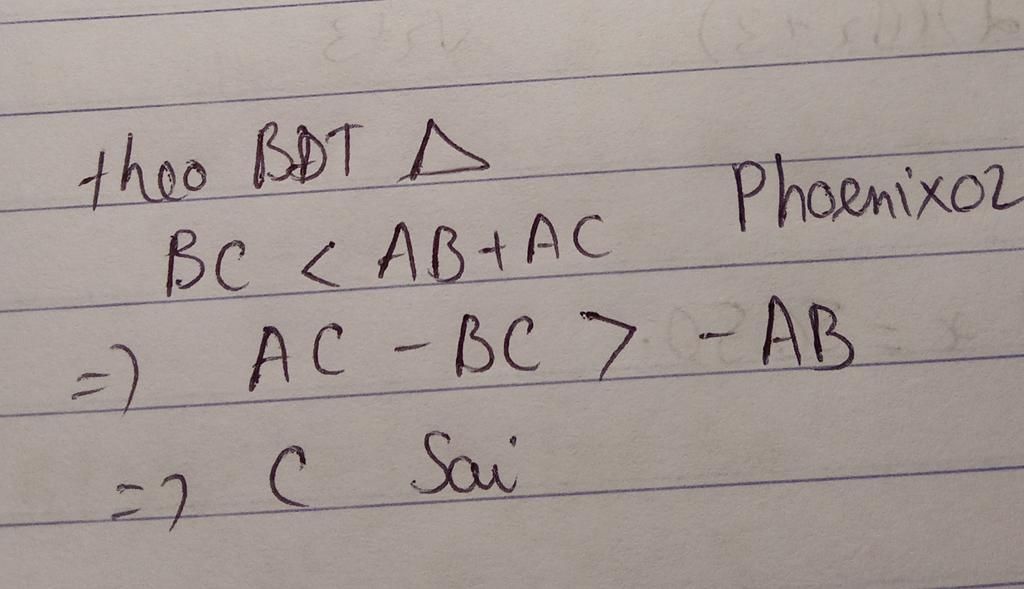 theo BDT △
Phoenix02
BC < AB + AC
=) AC - BC > - AB
=) C Sai